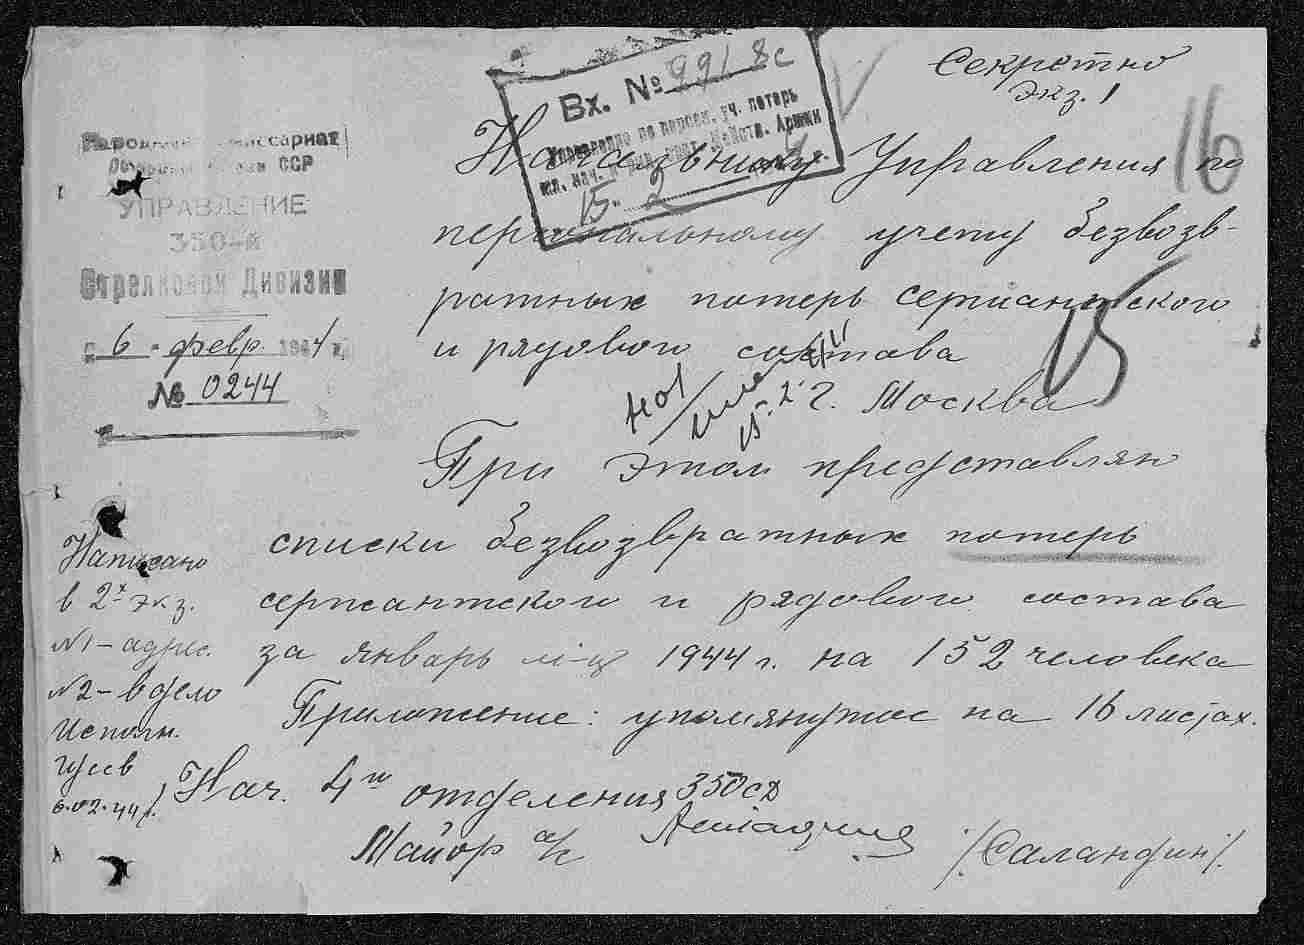 Секретно
Экз. 1
Вх. № 9918с
Управление по персон. уч. потерь
15. 2
16
Народный Комиссариат
Обороны Союза ССР
УПРАВЛЕНИЕ
350-й
Стрелковой Дивизии
6 февр. 1944 г.
№ 0244
Начальнику Управления по
персональному учету безвозв-
ратных потерь сержантского
и рядового состава
г. Москва
15
15.2.
При этом представляю
списки безвозвратных потерь
сержантского и рядового состава
за январь м-ц 1944 г. на 152 человека
Приложение: упомянутое на 16 листах.
Нач. 4го отделения 350 сд
Майор а/с
/Саландин/.
Написано
в 2х экз.
№1 – адрес.
№2 – в дело
Исполн.
6.02.44 г.